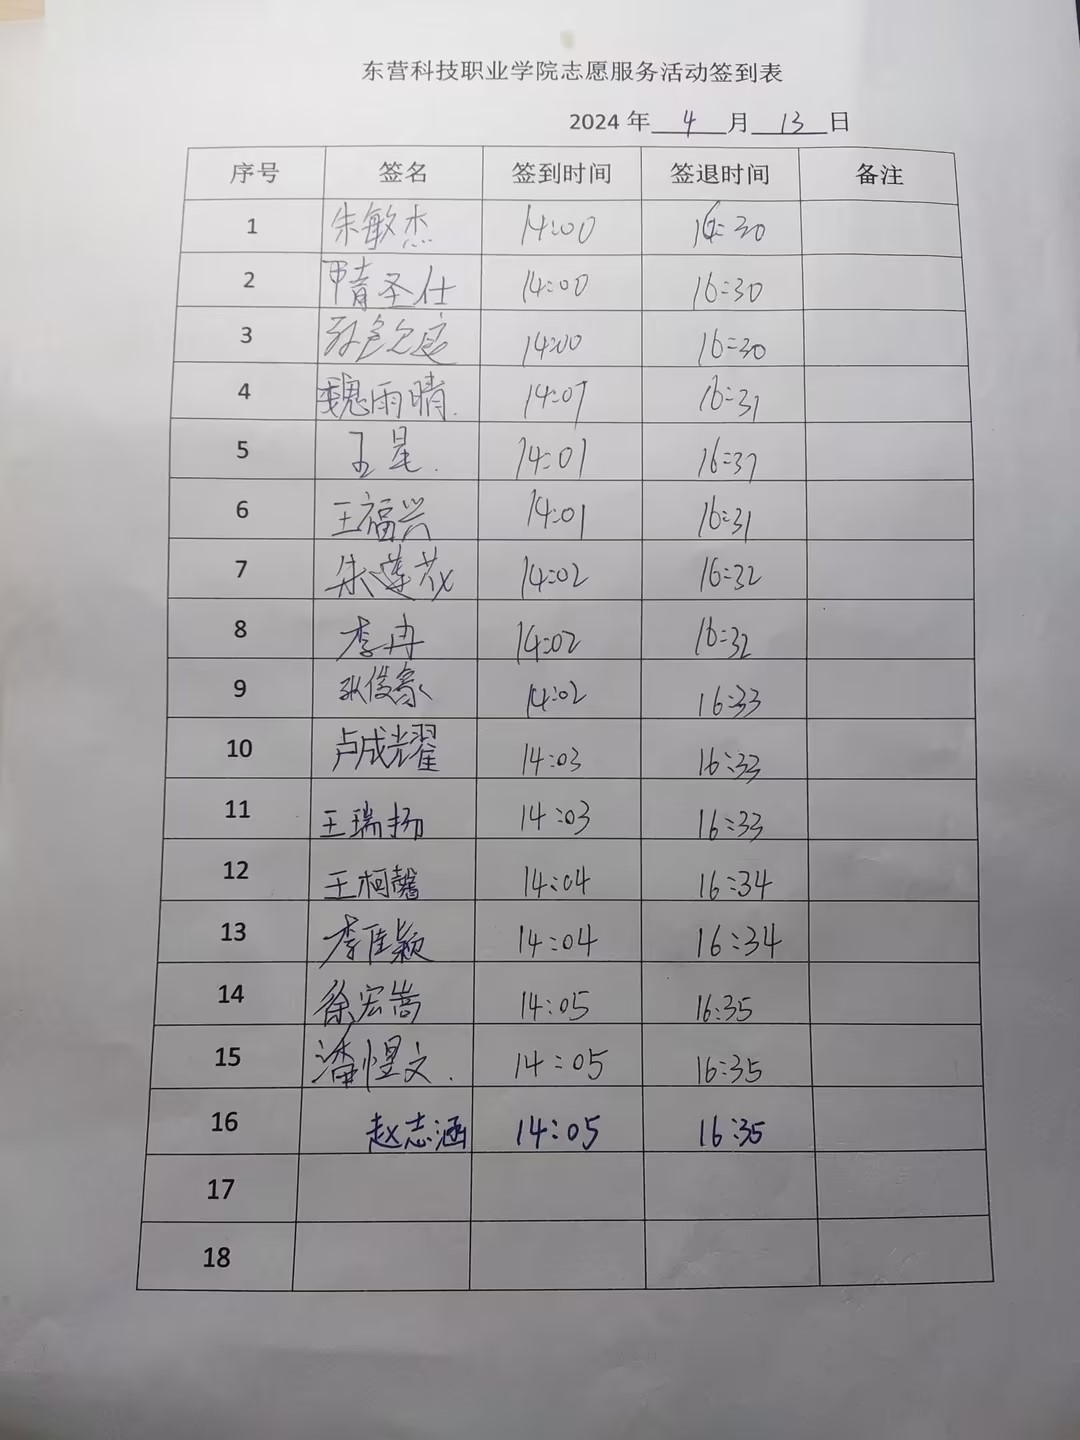 东营科技职业学院志愿服务活动签到表
2024 年 4 月 13 日
序号 签名 签到时间 签退时间 备注
1 朱敏杰 14:00 16:30
2 圣仕 14:00 16:30
3 14:00 16:30
4 魏雨晴 14:01 16:31
5 王星 14:01 16:31
6 王福兴 14:01 16:31
7 朱莲花 14:02 16:32
8 李冉 14:02 16:32
9 耿俊豪 14:02 16:33
10 卢成光耀 14:03 16:33
11 王瑞扬 14:03 16:33
12 王柯馨 14:04 16:34
13 李佳颖 14:04 16:34
14 徐宏嵩 14:05 16:35
15 潘煜文 14:05 16:35
16 赵志涵 14:05 16:35
17
18